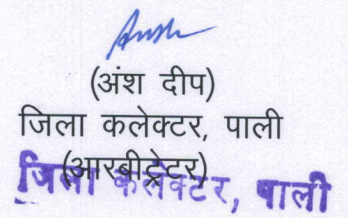 (अंश दीप)
जिला कलेक्टर, पाली
(आरबीट्रेटर)
जिला कलेक्टर, पाली